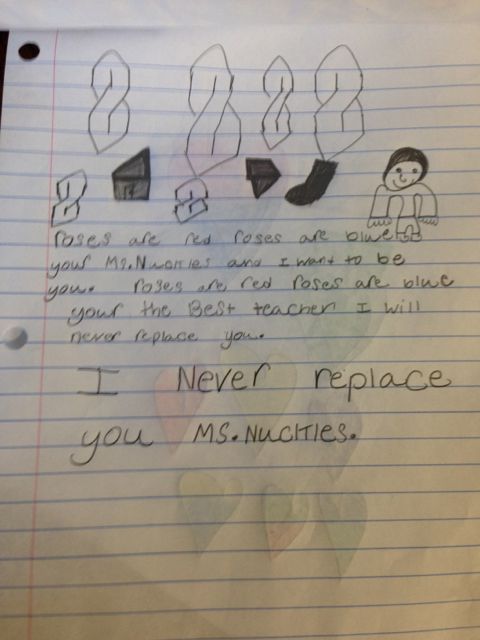 roses are red roses are blue
your Ms.Nuckles and I want to be
you. roses are red roses are blue
your the Best teacher I will
never replace you.
I Never replace
you Ms.Nuckles.